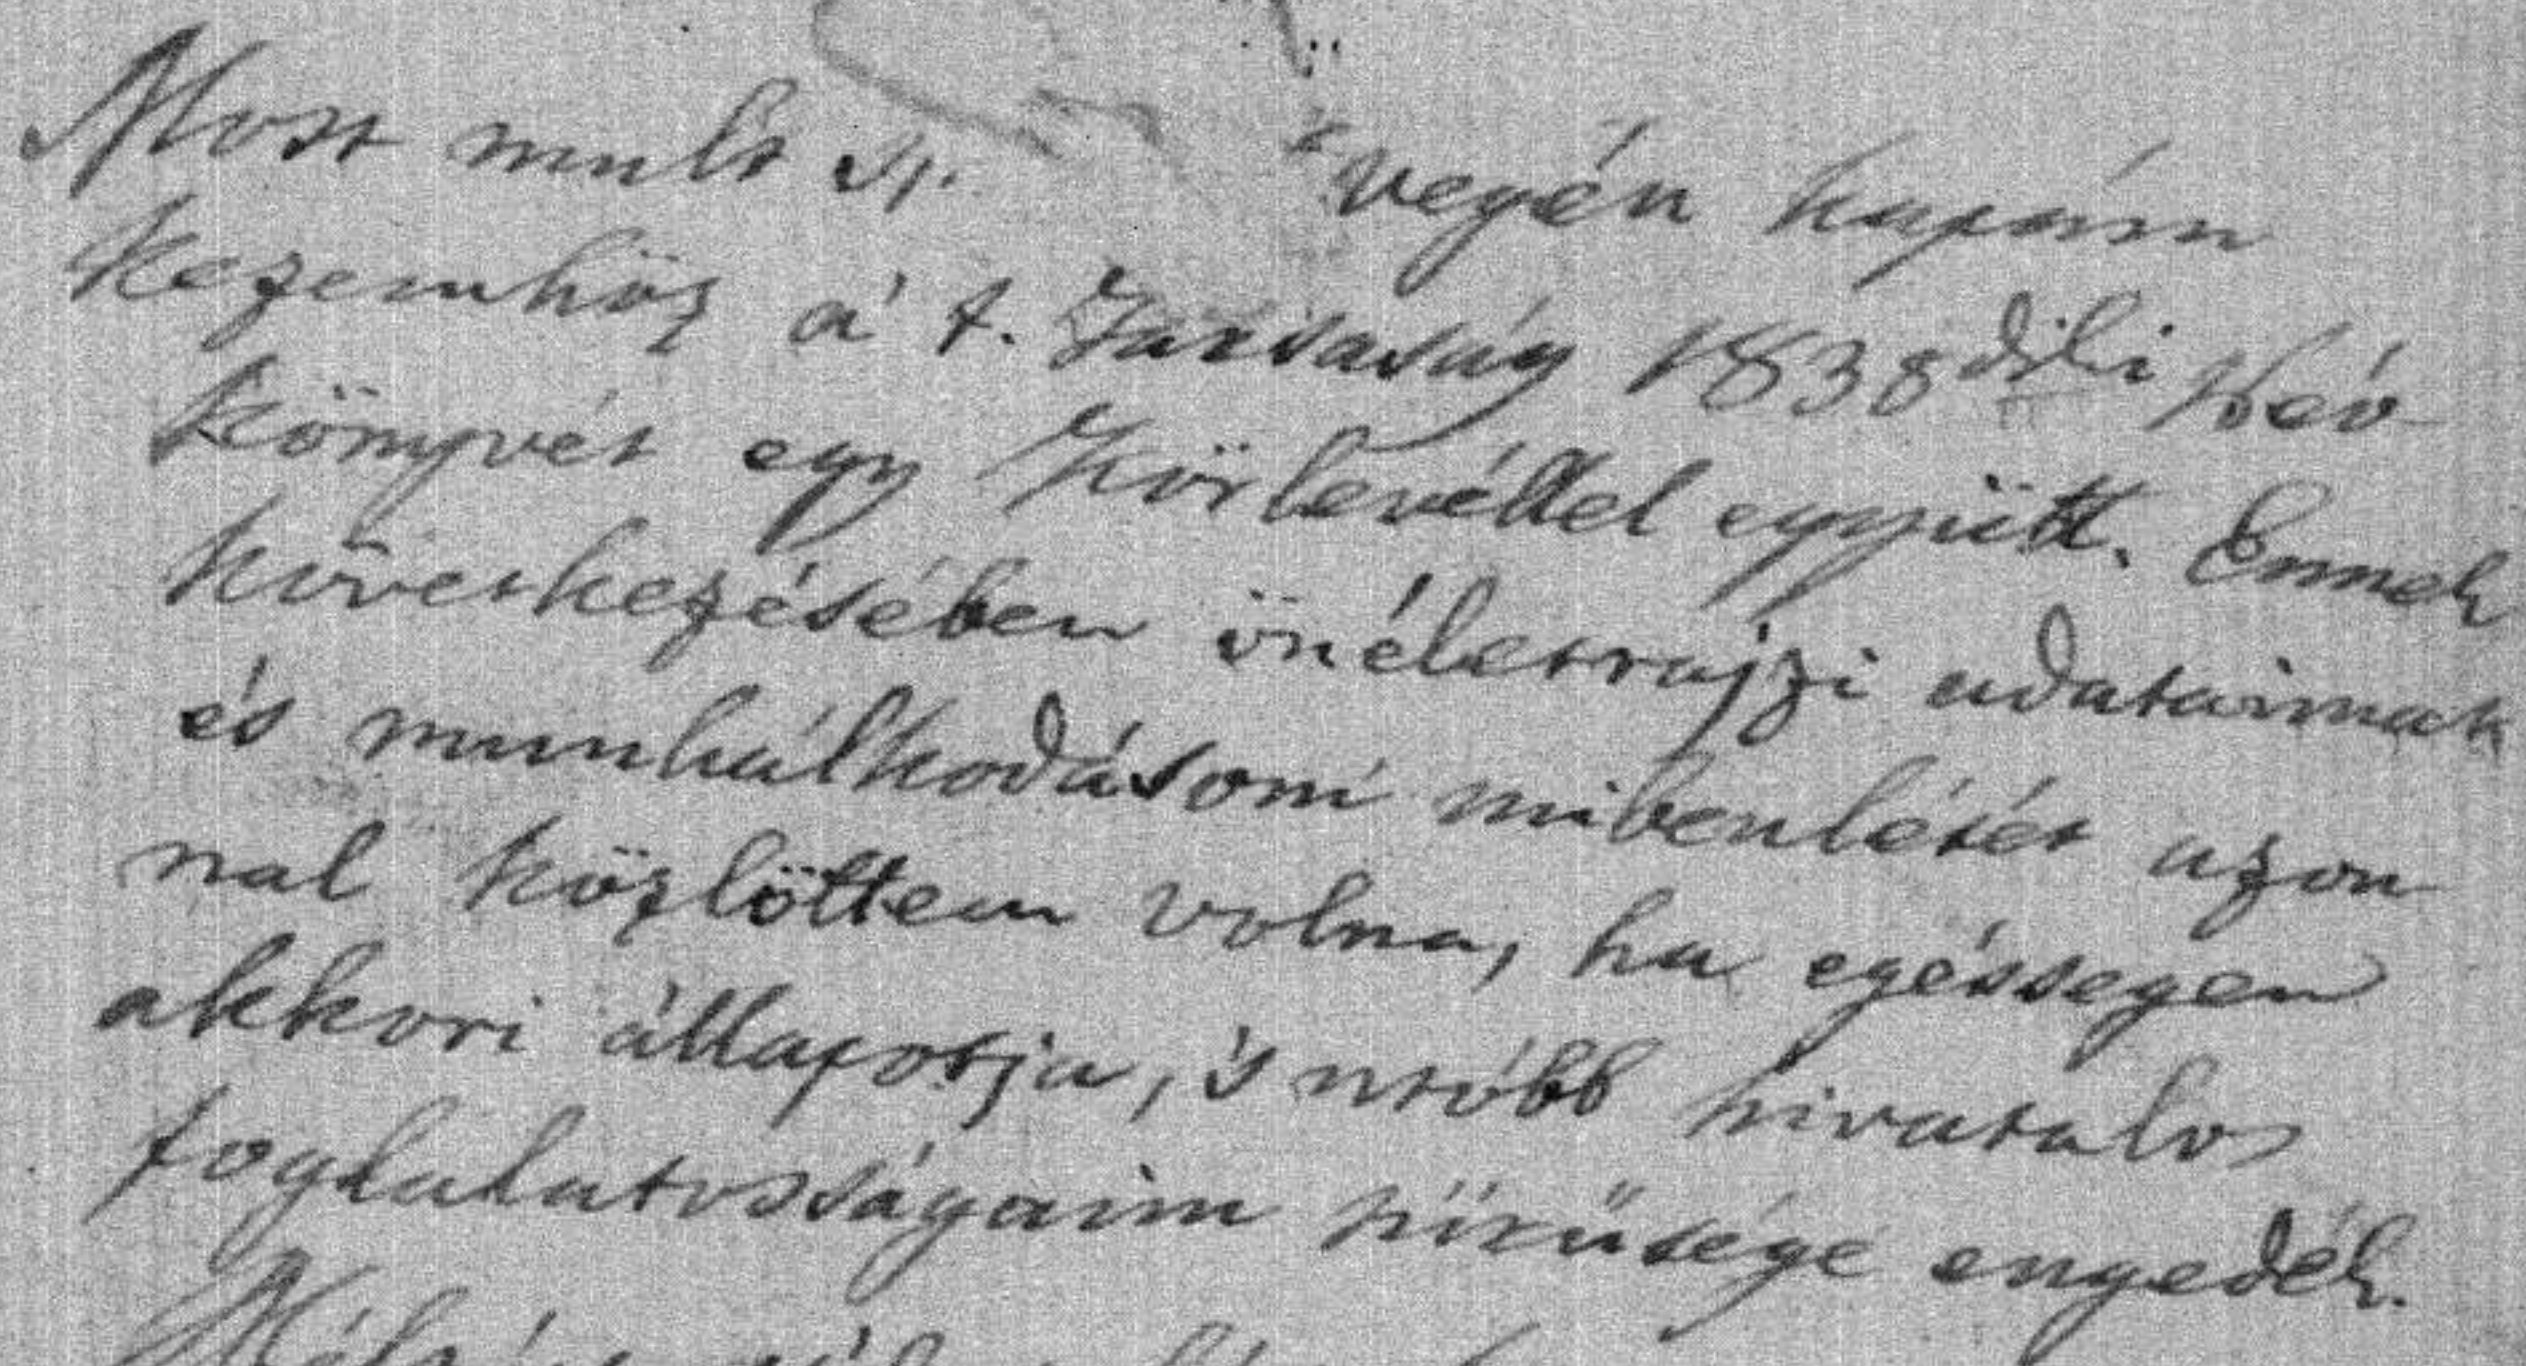 Most mult
végén kapám
kezemhöz a' t. Társaság 1838diki Név
könyvét egy körlevéllel együtt. Ennek
következésében önéletrajzi adataimnak
és munkálkodásom mibenlétét azon
nal közlöttem volna, ha egésségem
akkori állapotja, 's utóbb hivatalos
foglalatosságaim sürüsége engedék.